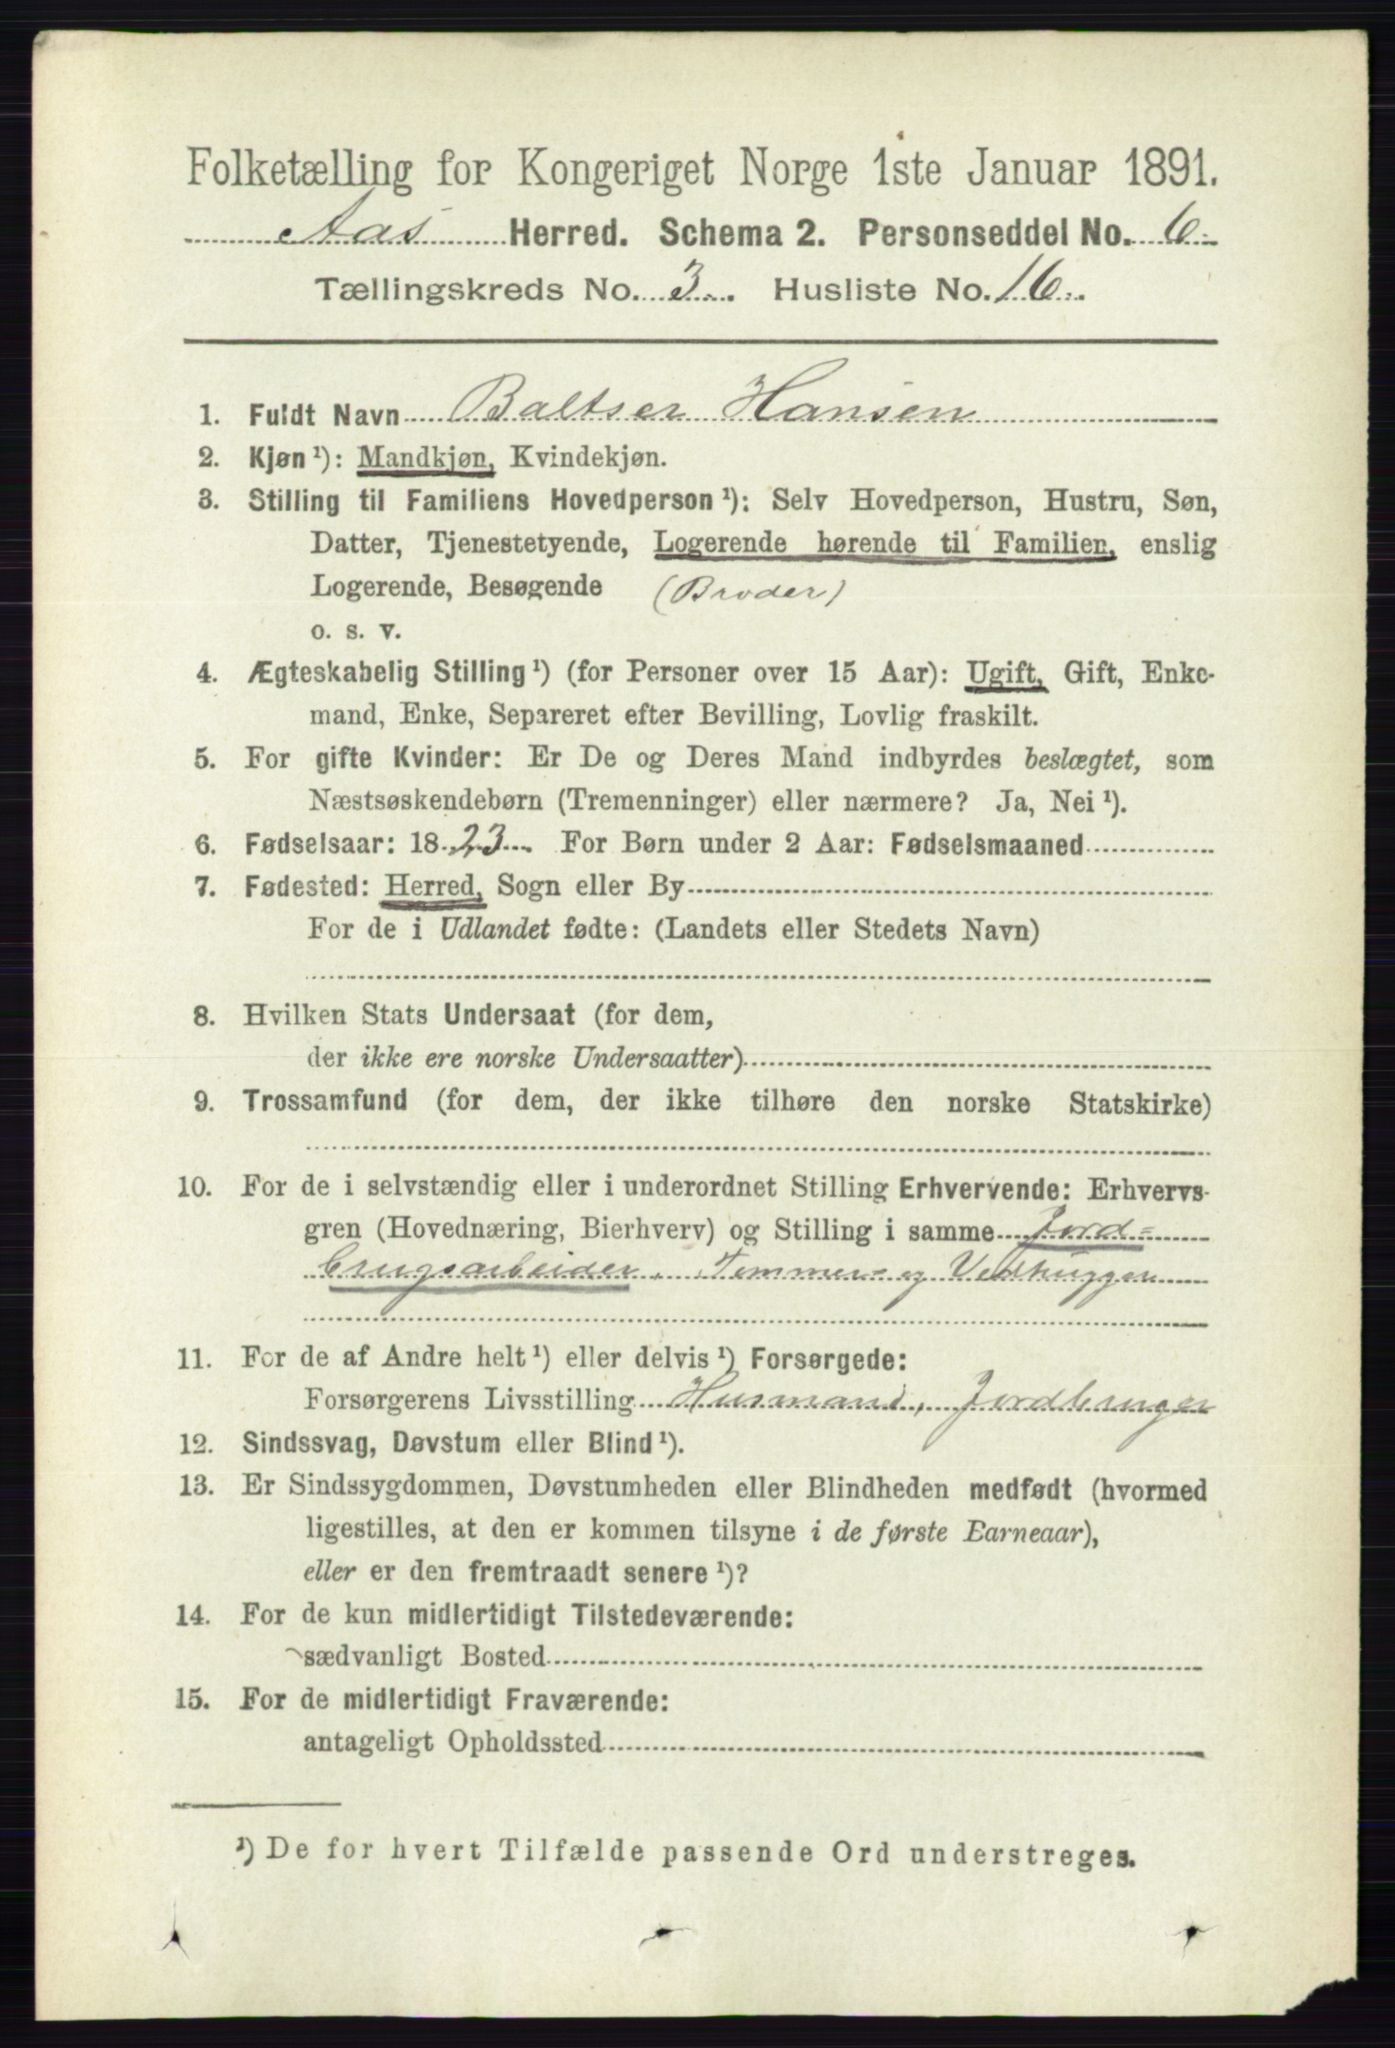 Folketælling for Kongeriget Norge 1ste Januar 1891.
Aas Herred. Schema 2. Personseddel No. 6
Tællingskreds No. 3. Husliste No. 16.
1. Fuldt Navn Baltser Hansen
2. Kjøn ¹): Mandkjøn, Kvindekjøn.
3. Stilling til Familiens Hovedperson ¹): Selv Hovedperson, Hustru, Søn,
Datter, Tjenestetyende, Logerende hørende til Familien, enslig
Logerende, Besøgende (Broder)
o. s. v.
4. Ægteskabelig Stilling ¹) (for Personer over 15 Aar): Ugift, Gift, Enke-
mand, Enke, Separeret efter Bevilling, Lovlig fraskilt.
5. For gifte Kvinder: Er De og Deres Mand indbyrdes beslægtet, som
Næstsøskendebørn (Tremenninger) eller nærmere? Ja, Nei ¹).
6. Fødselsaar: 1823. For Børn under 2 Aar: Fødselsmaaned
7. Fødested: Herred, Sogn eller By
For de i Udlandet fødte: (Landets eller Stedets Navn)
8. Hvilken Stats Undersaat (for dem,
der ikke ere norske Undersaatter)
9. Trossamfund (for dem, der ikke tilhøre den norske Statskirke)
10. For de i selvstændig eller i underordnet Stilling Erhvervende: Erhvervs-
gren (Hovednæring, Bierhverv) og Stilling i samme Jord=
brugsarbeider, Tømmer= og Vedhugger
11. For de af Andre helt ¹) eller delvis ¹) Forsørgede:
Forsørgerens Livsstilling Husmand, Jordbruger
12. Sindssvag, Døvstum eller Blind ¹).
13. Er Sindssygdommen, Døvstumheden eller Blindheden medfødt (hvormed
ligestilles, at den er kommen tilsyne i de første Barneaar),
eller er den fremtraadt senere ¹)?
14. For de kun midlertidigt Tilstedeværende:
sædvanligt Bosted
15. For de midlertidigt Fraværende:
antageligt Opholdssted
¹) De for hvert Tilfælde passende Ord understreges.